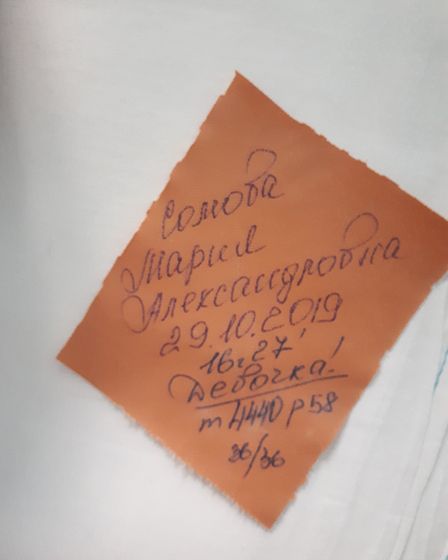 Сомова
Мария
Александровна
29.10.2019
16ч27'
Девочка!
m 4440 p 58
36/36